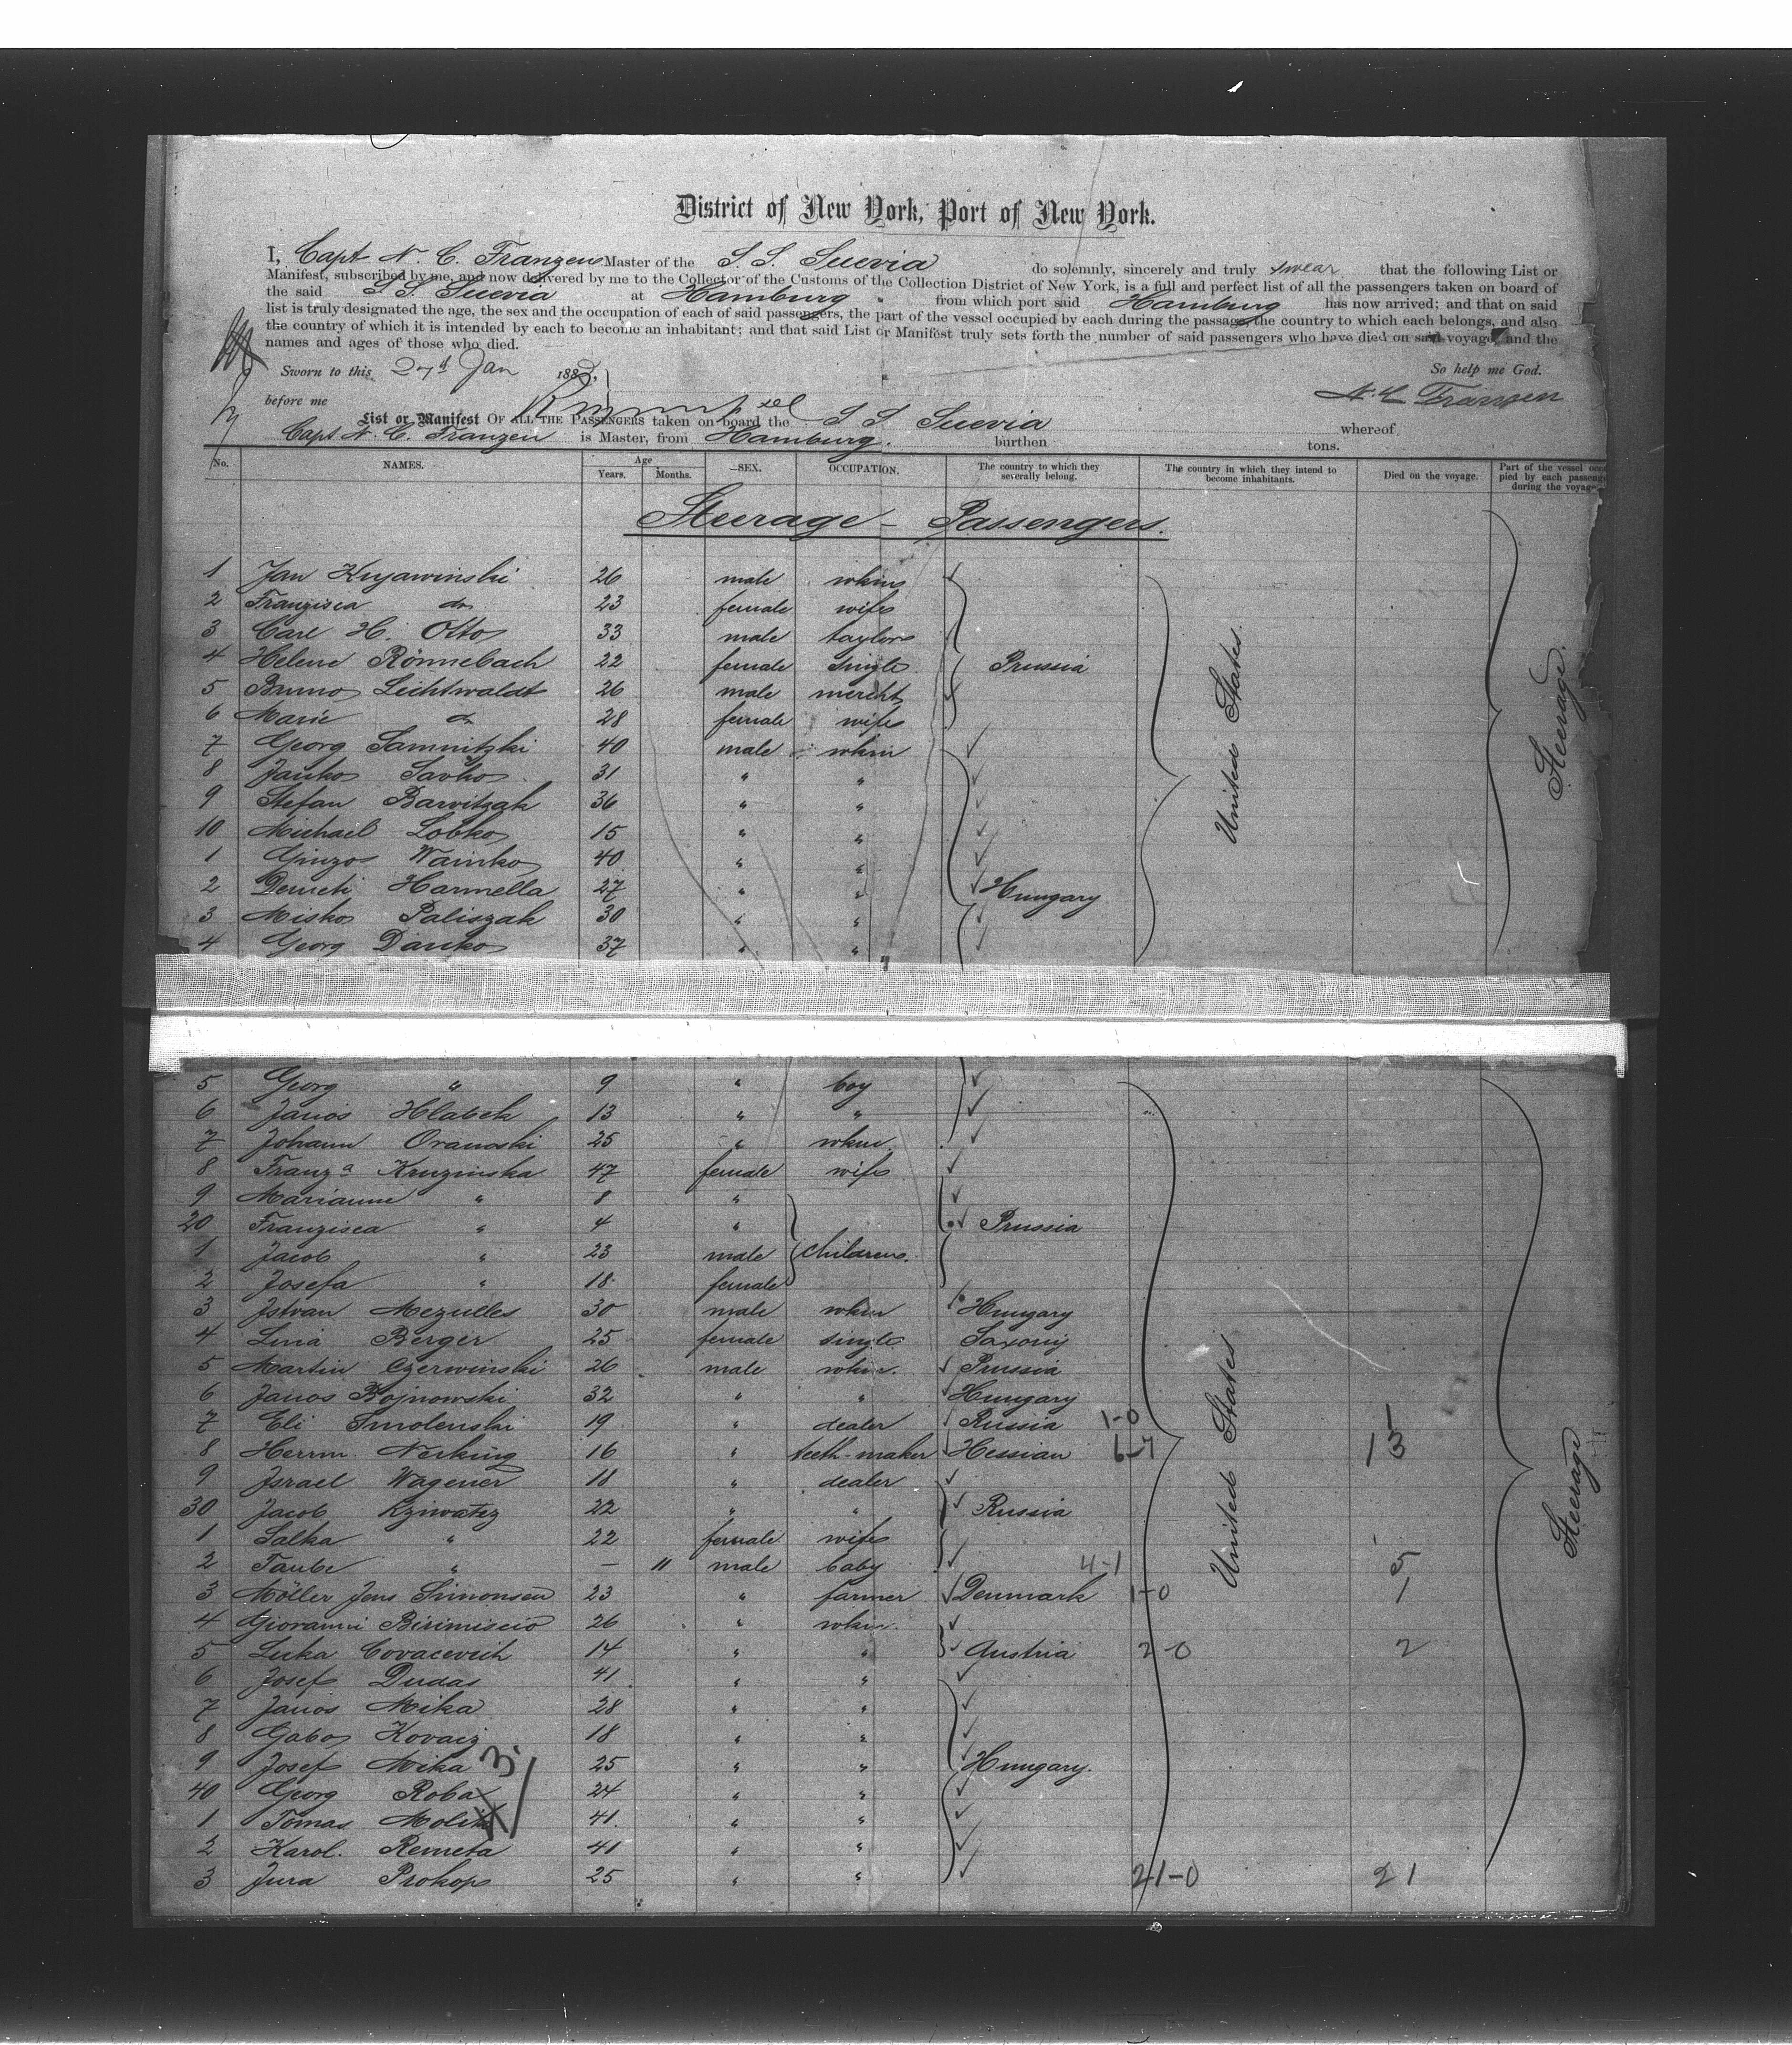 District of New York, Port of New York.
I, Capt N. C. Franzen Master of the S. S. Suevia do solemnly, sincerely and truly swear that the following List or
Manifest, subscribed by me, and now delivered by me to the Collector of the Customs of the Collection District of New York, is a full and perfect list of all the passengers taken on board of
the said S. S. Suevia at Hamburg from which port said Hamburg has now arrived; and that on said
list is truly designated the age, the sex and the occupation of each of said passengers, the part of the vessel occupied by each during the passage, the country to which each belongs, and also
the country of which it is intended by each to become an inhabitant; and that said List or Manifest truly sets forth the number of said passengers who have died on said voyage, and the
names and ages of those who died.
Sworn to this 27th Jan 188 So help me God.
before me N. C. Franzen
List or Manifest OF ALL THE PASSENGERS taken on board the S S Suevia whereof
Capt N. C. Franzen is Master, from Hamburg. burthen tons.
No. NAMES. Age Years. Months. SEX. OCCUPATION. The country to which they severally belong. The country in which they intend to become inhabitants. Died on the voyage. Part of the vessel occupied by each passenger during the voyage
Steerage - Passengers.
1 Jan Kujawinski 26 male wkm
2 Franzisca do 23 female wife
3 Carl H. Otto 33 male taylor
4 Helene Rönnebach 22 female single Prussia
5 Bruno Lichtwaldt 26 male mercht
6 Marie do 28 female wife
7 Georg Samnitzki 40 male wkm
8 Janko Savko 31 " "
9 Stefan Barvitzak 36 " "
10 Michael Lobko 15 " "
1 Ginzo Wainko 40 " "
2 Demeti Harmella 27 " " Hungary
3 Misko Paliszak 30 " "
4 Georg Danko 37 " "
United States.
Steerage.
5 Georg " 9 " boy
6 Janos Hlabek 13 " "
7 Johann Oranoski 25 " wkm
8 Franza Kruzinska 47 female wife
9 Marianne " 8 "
20 Franzisca " 4 " Prussia
1 Jacob " 23 male children
2 Josefa " 18 female
3 Istvan Mezulles 30 male wkm Hungary
4 Lina Berger 25 female single Saxony
5 Martin Czerwinski 26 male wkm. Prussia
6 Janos Bojnowski 32 " " Hungary
7 Eli Smolenski 19 " dealer Russia 1-0 1
8 Herrm. Nerking 16 " teeth-maker Hessian 13
9 Israel Wagener 18 " dealer
30 Jacob Kziwatez 22 " " Russia
1 Salka " 22 female wife
2 Taube " — 11 male baby 4-1 5
3 Möller Jens Simonsen 23 " farmer Denmark 1-0 1
4 Giovanni Birimiscio 26 " wkm.
5 Luka Covacevich 14 " " Austria 2-0 2
6 Josef Dudas 41 " "
7 Janos Mika 28 " "
8 Gabos Kovacz 18 " "
9 Josef Mika 25 " " Hungary.
40 Georg Roba 24 " "
1 Tomas 41. " "
2 Karol. Remeta 41 " "
3 Jura Prokop 25 " " 21-0 21
United States
Steerage